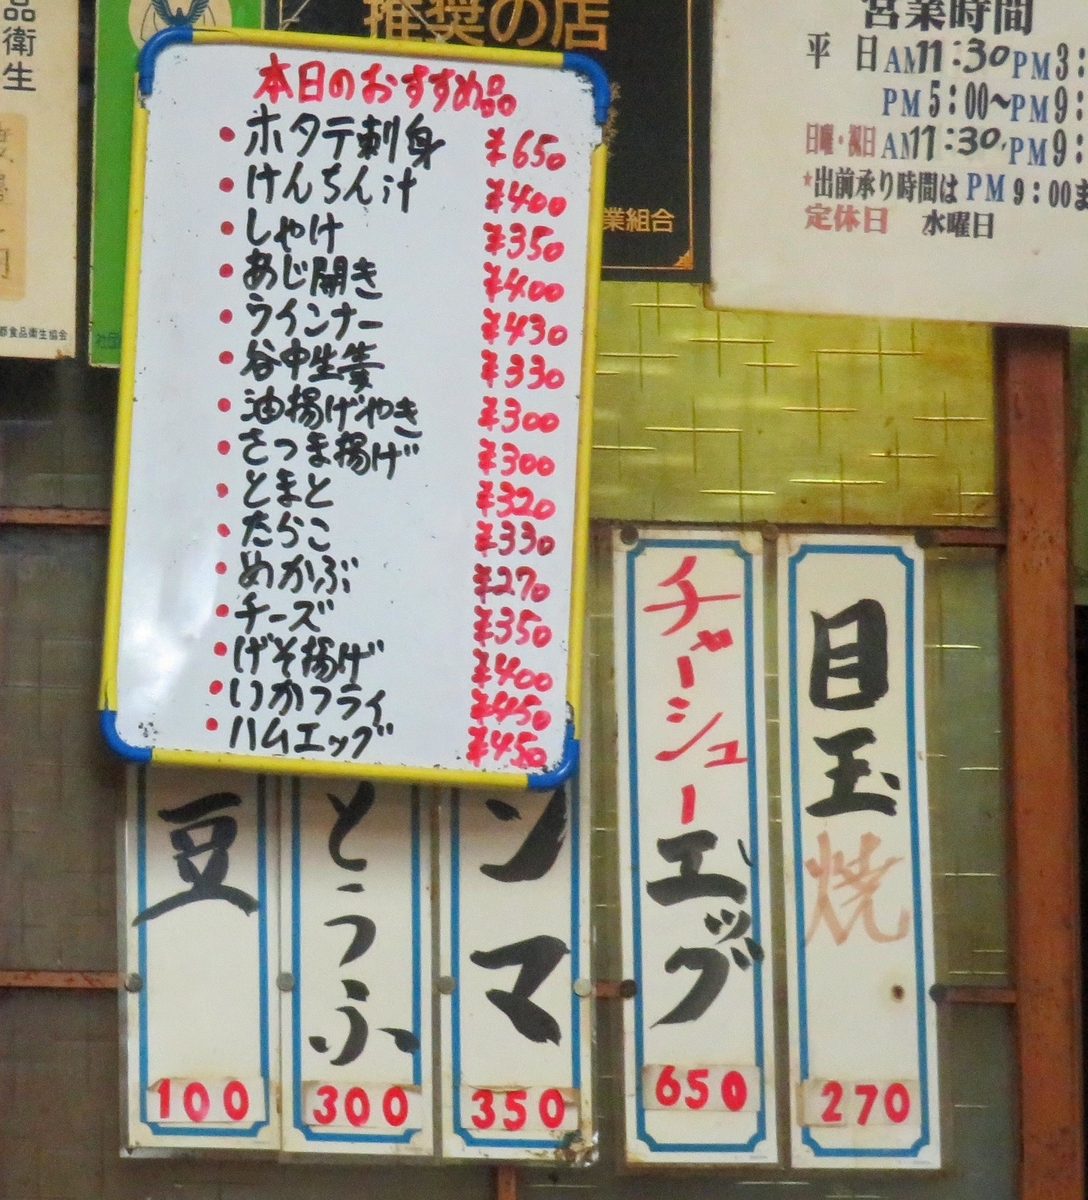 品衛生
都食品衛生協会
推奨の店
業組合
営業時間
平日 AM11:30 PM3:
PM5:00~PM9:
日曜・祝日 AM11:30, PM9:
*出前承り時間は PM9:00ま
定休日 水曜日
本日のおすすめ品
・ホタテ刺身 ¥650
・けんちん汁 ¥400
・しゃけ ¥350
・あじ開き ¥400
・ウインナー ¥430
・谷中生姜 ¥330
・油揚げやき ¥300
・さつま揚げ ¥300
・とまと ¥320
・たらこ ¥330
・めかぶ ¥270
・チーズ ¥350
・げそ揚げ ¥400
・いかフライ ¥450
・ハムエッグ ¥450
豆
100
とうふ
300
ンマ
350
チャーシューエッグ
650
目玉焼
270